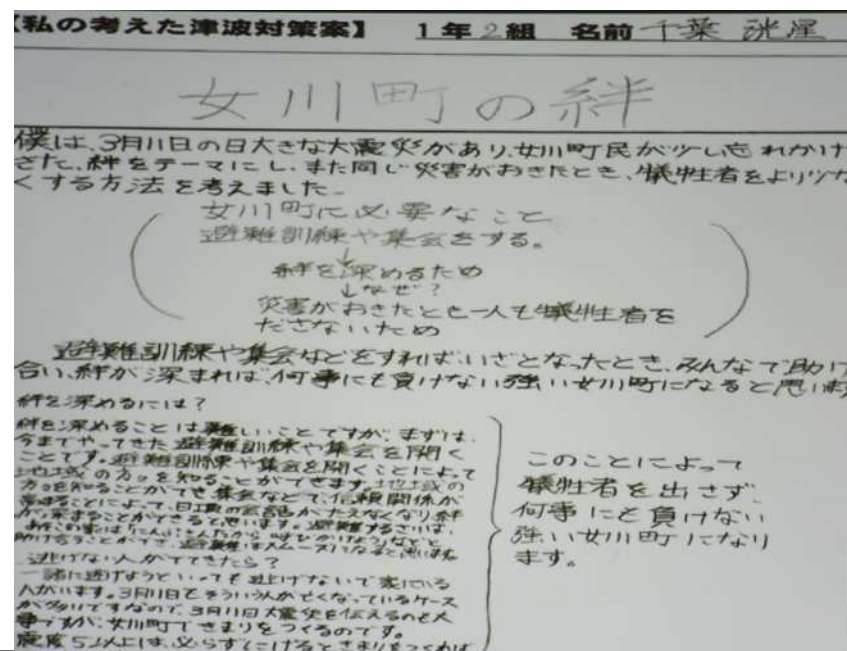 【私の考えた津波対策案】 1年2組 名前 千葉
女川町の絆
僕は、3月11日の日大きな大震災があり、女川町民が少し忘れかけ
きた、絆をテーマにし、また同じ災害がおきたとき、犠牲者をより少な
くする方法を考えました。
女川町に必要なこと
避難訓練や集会をする。
↓
絆を深めるため
↓なぜ?
災害がおきたとき一人も犠牲者を
ださないため
避難訓練や集会などをすれば、いざとなったとき、みんなで助け
合い、絆が深まれば、何事にも負けない強い女川町になると思いま
絆を深めるには?
絆を深めることは難しいことですが、まずは、
今までやってきた避難訓練や集会を開く
ことです。避難訓練や集会を開くことによって
地域の方々を知ることができます。地域の
方々を知ることができ集会などで、信頼関係が
ることによって、日頃の会話がたえなくなり絆
が深まることができると思います。避難するさいは、
助け合うことができ、避難はスムーズになると思います。
逃げない人がでてきたら?
一緒に逃げようといっても逃げないで家にいる
人がいます。3月11日もそういう人が亡くなっているケース
が多いですなので、3月11日大震災を伝えるのも大
事ですが、女川町できまりをつくるのです。
震度5以上は、必らずにげるときまりをつくれば
このことによって
犠牲者を出さず、
何事にも負けない
強い女川町になり
ます。